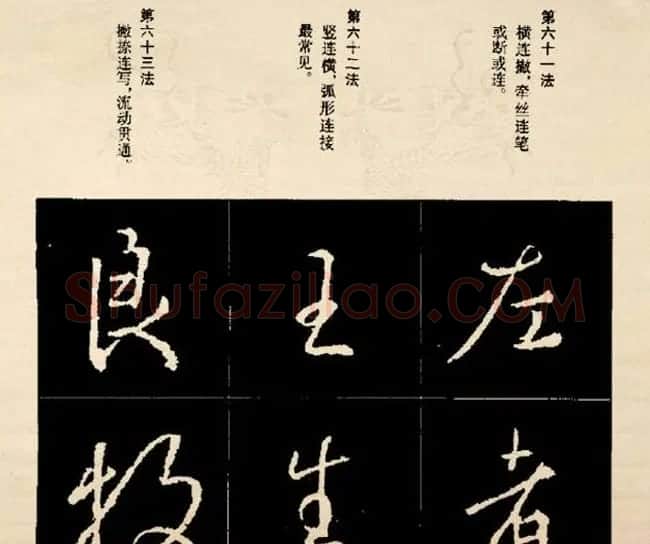 第六十一法
横连撇,牵丝连笔
或断或连。
第六十二法
竖连横,弧形连接
最常见。
第六十三法
撇捺连写,流动贯通。
左
者
王
生
良
牧
Shufaziliao.COM